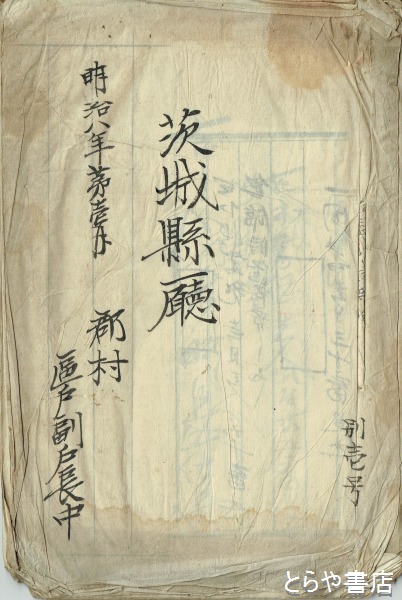 別壱号
茨城縣廳
明治八年第壱月
郡村
區戸副戸長中
とらや書店